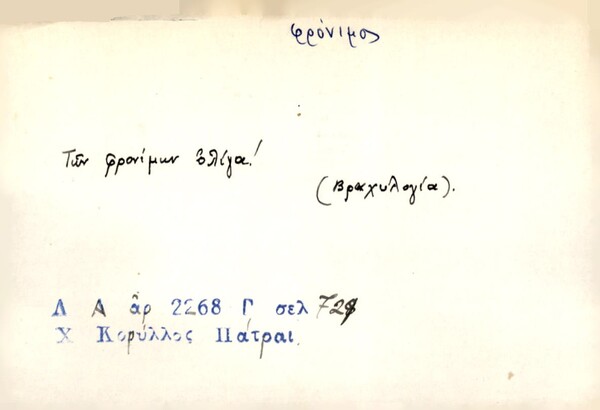 φρόνιμος
Τῶν φρονίμων ὀλίγα!
(Βραχυλογία).
Λ Α ἀρ 2268 Γ σελ
Χ Κορύλλος Πάτραι